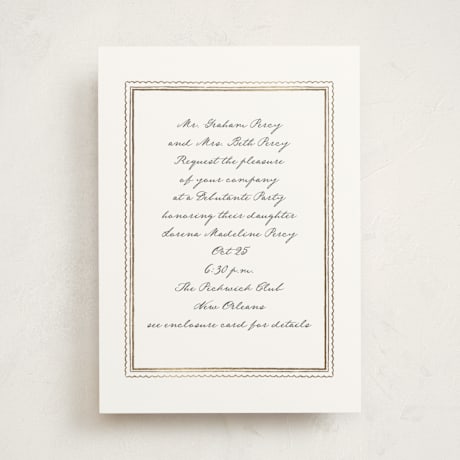 Mr. Graham Percy
and Mrs. Beth Percy
Request the pleasure
of your company
at a Debutante Party
honoring their daughter
Lorena Madeline Percy
Oct 25
6:30 p.m.
The Pickwick Club
New Orleans
see enclosure card for details